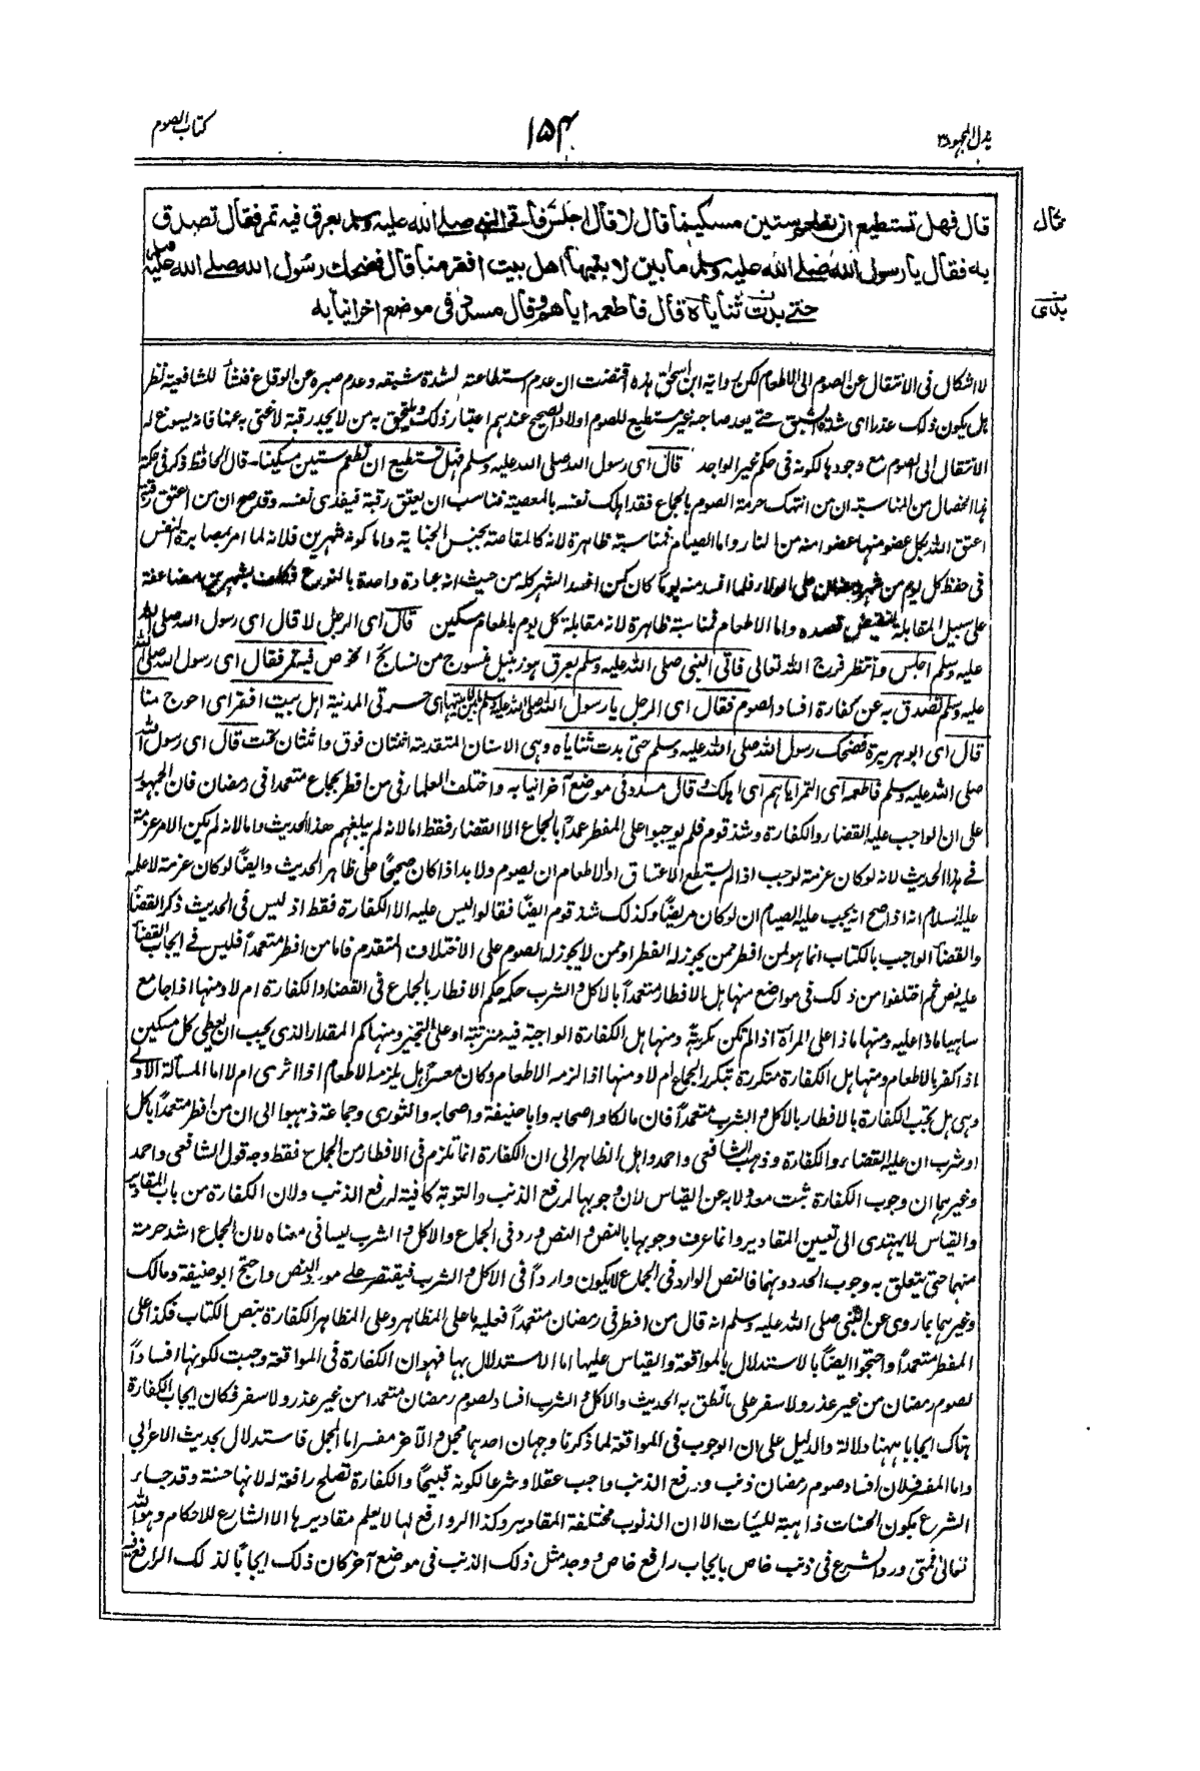 بذل المجهود ٣
١٥٤
كتاب الصوم
قال فهل تستطيع ان تطعم ستين مسكينا قال لا قال اجلس فأتى النبي صلى الله عليه وسلم بعرق فيه تمر فقال تصدق
قال
به فقال يا رسول الله صلى الله عليه وسلم ما بين لابتيها اهل بيت افقر منا قال فضحك رسول الله صلى الله عليه وسلم
حتى بدت ثناياه قال فاطعمه اياهم وقال مسدد فى موضع اخر انيابه
لا اشكال فى الانتقال عن الصوم الى الاطعام لكن رواية ابن اسحق هذه اقتضت ان عدم استطاعته لشدة شبقه وعدم صبره عن الوقاع فنشأ للشافعية نظر
هل يكون ذلك عذرا اى شدة الشبق حتى يعد صاحبه غير مستطيع للصوم اولا والصحيح عندهم اعتبار ذلك ويلتحق به من لا يجد رقبة لا غنى به عنها فانه يسوغ له
الانتقال الى الصوم مع وجودها لكونه فى حكم غير الواجد قال اى رسول الله صلى الله عليه وسلم فهل تستطيع ان تطعم ستين مسكينا - قال الحافظ ذكر فى حكمة
هذه الخصال من المناسبة ان من انتهك حرمة الصوم بالجماع فقد اهلك نفسه بالمعصية فناسب ان يعتق رقبة فيفدى نفسه وقد صح ان من اعتق رقبة
اعتق الله بكل عضو منها عضوا منه من النار واما الصيام فمناسبته ظاهرة لانه كالمقاصة بجنس الجناية واما كونه شهرين فلانه لما امر بمصابرة النفس
فى حفظ كل يوم من شهر رمضان على الولاء فلما افسد منه يوما كان كمن افسد الشهر كله من حيث انه عبادة واحدة بالنوع فكلف بشهرين مضاعفة
على سبيل المقابلة لنقيض قصده واما الاطعام فمناسبته ظاهرة لانه مقابلة كل يوم باطعام مسكين قال اى الرجل لا قال اى رسول الله صلى الله
عليه وسلم اجلس وانتظر فرج الله تعالى فاتى النبى صلى الله عليه وسلم بعرق هو زنبيل منسوج من نسائج الخوص فيه تمر فقال اى رسول الله صلى الله
عليه وسلم تصدق به عن كفارة افساد الصوم فقال اى الرجل يا رسول الله صلى الله عليه وسلم ما بين لابتيها اى حرتى المدنية اهل بيت افقر اى احوج منا
قال اى ابو هريرة فضحك رسول الله صلى الله عليه وسلم حتى بدت ثناياه وهى الاسنان المتقدمة اثنتان فوق واثنتان تحت قال اى رسول الله
صلى الله عليه وسلم فاطعمه اى التمر اياهم اى اهلك وقال مسدد فى موضع آخر انيابه واختلف العلماء فى من افطر بجماع متعمدا فى رمضان فان الجمهور
على ان الواجب عليه القضاء والكفارة وشذ قوم فلم يوجبوا على المفطر عمداً بالجماع الا القضاء فقط اما لانه لم يبلغهم هذا الحديث واما لانه لم يكن الامر عزمة
فى هذا الحديث لانه لو كان عزمة لوجب اذا لم يستطع الاعتاق او الاطعام ان يصوم ولا بد اذا كان صحيحًا على ظاهر الحديث وايضًا لو كان عزمة لاعلمه
عليه السلام انه اذا صح انه يجب عليه الصيام ان لو كان مريضًا وكذلك شذ قوم ايضًا فقالوا ليس عليه الا الكفارة فقط اذ ليس فى الحديث ذكر القضاء
والقضاء الواجب بالكتاب انما هو لمن افطر ممن يجوز له الفطر او ممن لا يجوز له الصوم على الاختلاف المتقدم فاما من افطر متعمداً فليس فى ايجاب القضاء
عليه نص ثم اختلفوا من ذلك فى مواضع منها هل الافطار متعمداً بالاكل والشرب حكمه حكم الافطار بالجماع فى القضاء والكفارة ام لا ومنها اذا جامع
ساهيا ماذا عليه ومنها ماذا على المرأة اذا لم تكن مكرهة ومنها هل الكفارة الواجبة فيه مترتبة او على التخيير ومنها كم المقدار الذى يجب ان يعطى كل مسكين
اذا كفر بالاطعام ومنها هل الكفارة متكررة بتكرر الجماع ام لا ومنها اذا لزمه الاطعام وكان معسراً هل يلزمه الاطعام اذا اثرى ام لا اما المسألة الاولى
وهى هل تجب الكفارة بالافطار بالاكل والشرب متعمداً فان مالكا واصحابه وابا حنيفة واصحابه والثورى وجماعة ذهبوا الى ان من افطر متعمداً باكل
او شرب ان عليه القضاء والكفارة وذهب الشافعى واحمد واهل الظاهر الى ان الكفارة انما تلزم فى الافطار من الجماع فقط وجه قول الشافعى واحمد
وغيرهما ان وجوب الكفارة ثبت معدولا به عن القياس لان وجوبها لرفع الذنب والتوبة كافية لرفع الذنب ولان الكفارة من باب المقادير
والقياس لا يهتدى الى تعيين المقادير وانما عرف وجوبها بالنص والنص ورد فى الجماع والاكل والشرب ليسا فى معناه لان الجماع اشد حرمة
منهما حتى يتعلق به وجوب الحد دونهما فالنص الوارد فى الجماع لا يكون وارداً فى الاكل والشرب فيقتصر على مورد النص واحتج ابو حنيفة ومالك
وغيرهما بما روى عن النبى صلى الله عليه وسلم انه قال من افطر فى رمضان متعمداً فعليه ما على المظاهر وعلى المظاهر الكفارة بنص الكتاب فكذا على
المفطر متعمداً واحتجوا ايضًا بالاستدلال بالمواقعة والقياس عليها اما الاستدلال بها فهو ان الكفارة فى المواقعة وجبت لكونها افساداً
لصوم رمضان من غير عذر ولا سفر على ما نطق به الحديث والاكل والشرب افساد لصوم رمضان متعمدا من غير عذر ولا سفر فكان ايجاب الكفارة
هناك ايجابا ههنا دلالة والدليل على ان الوجوب فى المواقعة لما ذكرنا وجهان احدهما مجمل والآخر مفسر اما المجمل فاستدلال بحديث الاعرابى
واما المفسر فلان افساد صوم رمضان ذنب ورفع الذنب واجب عقلا وشرعا لكونه قبيحًا والكفارة تصلح رافعة له لانها حسنة وقد جاء
الشرع بكون الحسنات ذاهبة للسيئات الا ان الذنوب مختلفة المقادير وكذا الروافع لها لا يعلم مقاديرها الا الشارع للاحكام وهو الله
تعالى فمتى ورد الشرع فى ذنب خاص بايجاب رافع خاص ووجد مثل ذلك الذنب فى موضع آخر كان ذلك ايجابًا لذلك الرافع فيه